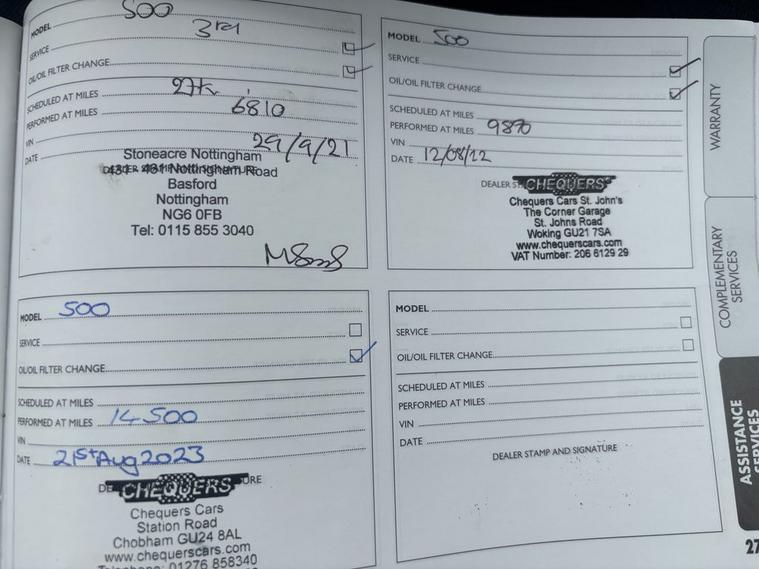 MODEL 500
3rd
SERVICE
OIL/OIL FILTER CHANGE
SCHEDULED AT MILES 27k
PERFORMED AT MILES 6810
VIN
DATE 29/9/21
Stoneacre Nottingham
Nottingham Road
Basford
Nottingham
NG6 0FB
Tel: 0115 855 3040
MODEL 500
SERVICE
OIL/OIL FILTER CHANGE
SCHEDULED AT MILES
PERFORMED AT MILES 9870
VIN
DATE 12/08/12
DEALER
CHEQUERS
Chequers Cars St. John's
The Corner Garage
St. Johns Road
Woking GU21 7SA
www.chequerscars.com
VAT Number: 206 6129 29
MODEL 500
SERVICE
OIL/OIL FILTER CHANGE
SCHEDULED AT MILES
PERFORMED AT MILES 14500
VIN
DATE 21st Aug 2023
CHEQUERS
Chequers Cars
Station Road
Chobham GU24 8AL
www.chequerscars.com
Telephone: 01276 858340
MODEL
SERVICE
OIL/OIL FILTER CHANGE
SCHEDULED AT MILES
PERFORMED AT MILES
VIN
DATE
DEALER STAMP AND SIGNATURE
WARRANTY
COMPLEMENTARY
SERVICES
ASSISTANCE
SERVICES
27